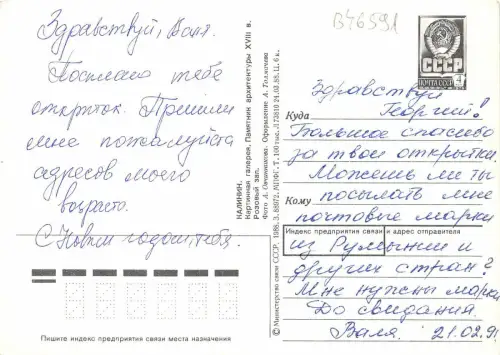 Здравствуй, Валя.
Посылаю тебе
откриток. Пришли
мне пожалуйста
адресов моего
возраста.
С Новым годом, тебя.
Пишите индекс предприятия связи места назначения
КАЛИНИН.
Картинная галерея. Памятник архитектуры XVIII в.
Розовый зал.
Фото А. Овчинникова. Оформление А.
© Министерство связи СССР. 1988. З. 88072. МПФГ. Т. 100 тыс. 24.03.88. Ц. 6 к.
В46591
СССР
ПОЧТА СССР 4
Здравствуй
Георгий!
Куда
Большое спасибо
за твои открытки.
Можешь ли ты
Кому посылать мне
почтовые марки
Индекс предприятия связи и адрес отправителя
из Румынии и
других стран?
Мне нужны марки
До свидания
Валя. 21.02.91